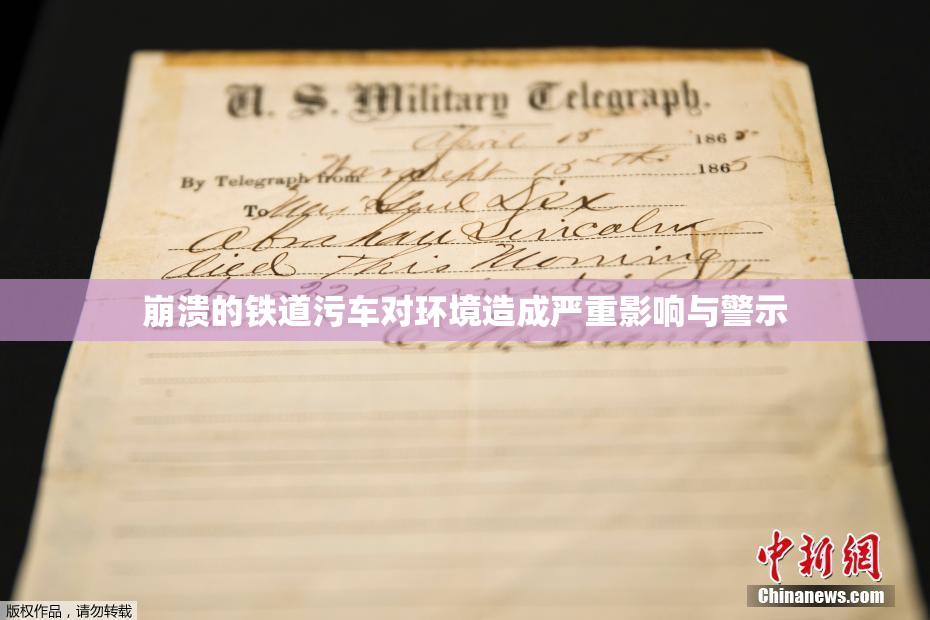 U. S. Military Telegraph.
April 15 1865.
By Telegraph from War Dept 15th 1865
To Maj Genl Dix
Abraham Lincoln
died this Morning
22 minutes after
崩溃的铁道污车对环境造成严重影响与警示
E. M. Stanton
中新网
Chinanews.com
版权作品，请勿转载